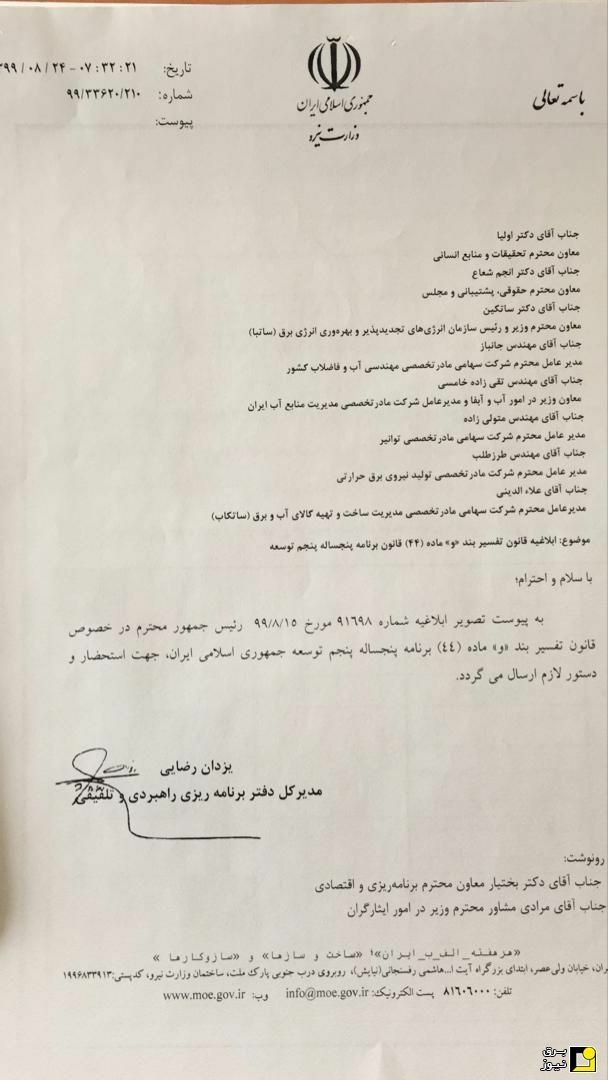 باسمه تعالی
جمهوری اسلامی ایران
وزارت نیرو
تاریخ: ۹۹/۰۸/۲۴ - ۰۷:۳۲:۲۱
شماره: ۹۹/۳۳۶۲۰/۲۱۰
پیوست:
جناب آقای دکتر اولیا
معاون محترم تحقیقات و منابع انسانی
جناب آقای دکتر انجم شعاع
معاون محترم حقوقی، پشتیبانی و مجلس
جناب آقای دکتر ساتکین
معاون محترم وزیر و رئیس سازمان انرژی‌های تجدیدپذیر و بهره‌وری انرژی برق (ساتبا)
جناب آقای مهندس جانباز
مدیر عامل محترم شرکت سهامی مادرتخصصی مهندسی آب و فاضلاب کشور
جناب آقای مهندس تقی زاده خامسی
معاون وزیر در امور آب و آبفا و مدیرعامل شرکت مادرتخصصی مدیریت منابع آب ایران
جناب آقای مهندس متولی زاده
مدیر عامل محترم شرکت سهامی مادرتخصصی توانیر
جناب آقای مهندس طرزطلب
مدیر عامل محترم شرکت مادرتخصصی تولید نیروی برق حرارتی
جناب آقای علاء الدینی
مدیرعامل محترم شرکت سهامی مادرتخصصی مدیریت ساخت و تهیه کالای آب و برق (ساتکاب)
موضوع: ابلاغیه قانون تفسیر بند «و» ماده (۴۴) قانون برنامه پنجساله پنجم توسعه
با سلام و احترام؛
به پیوست تصویر ابلاغیه شماره ۹۱۶۹۸ مورخ ۹۹/۸/۱۵ رئیس جمهور محترم در خصوص
قانون تفسیر بند «و» ماده (٤٤) برنامه پنجساله پنجم توسعه جمهوری اسلامی ایران، جهت استحضار و
دستور لازم ارسال می گردد.
یزدان رضایی
مدیرکل دفتر برنامه ریزی راهبردی و تلفیقی
رونوشت:
جناب آقای دکتر بختیار معاون محترم برنامه‌ریزی و اقتصادی
جناب آقای مرادی مشاور محترم وزیر در امور ایثارگران
«هرهفته_الف_ب_ایران»؛ «ساخت و سازها» و «سازوکارها»
ران، خیابان ولی‌عصر، ابتدای بزرگراه آیت ا...هاشمی رفسنجانی(نیایش)، روبروی درب جنوبی پارک ملت، ساختمان وزارت نیرو، کدپستی:۱۹۹۶۸۳۳۹۱۳
تلفن: ۸۱۶۰۶۰۰۰ پست الکترونیک: info@moe.gov.ir وب: www.moe.gov.ir
برق
نیوز